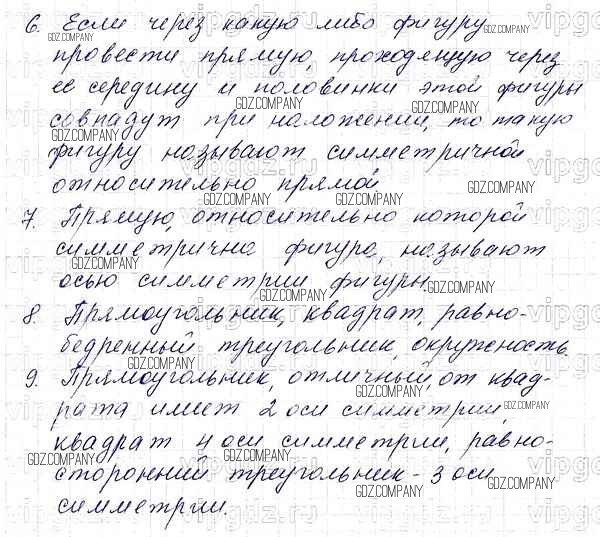 6. Если через какую либо фигуру
провести прямую, проходящую через
ее середину и половинки этой фигуры
совпадут при наложении, то такую
фигуру называют симметричной
относительно прямой
7. Прямую, относительно которой
симметрична фигура, называют
осью симметрии фигуры.
8. Прямоугольник, квадрат, равно-
бедренный треугольник, окружность.
9. Прямоугольник, отличный от квад-
рата имеет 2 оси симметрии,
квадрат 4 оси симметрии, равно-
сторонний треугольник - 3 оси
симметрии.